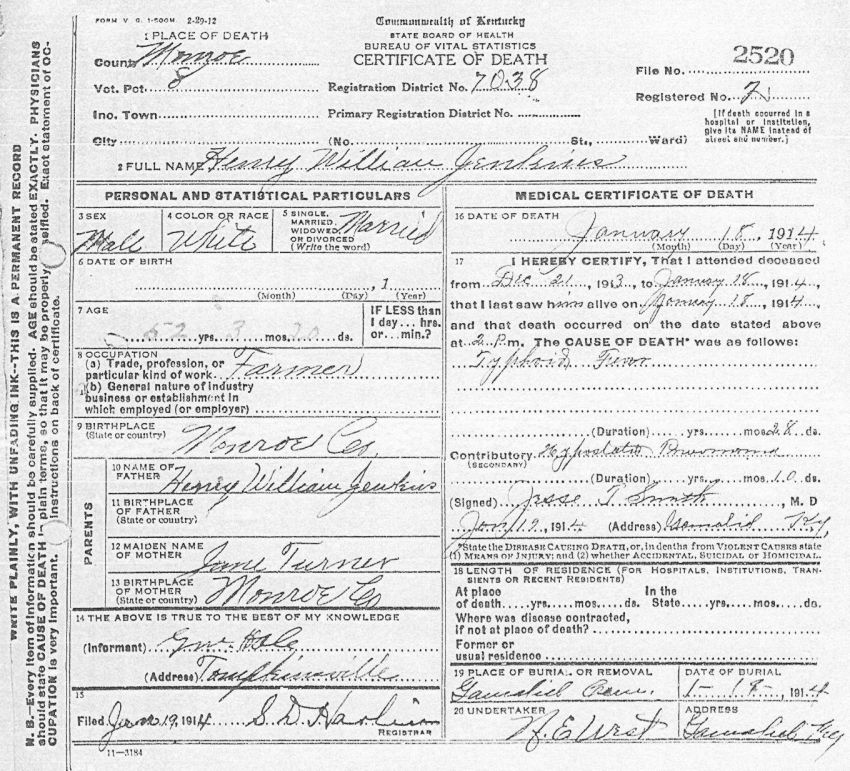 FORM V. S. 1-500M. 2-29-12
Commonwealth of Kentucky
STATE BOARD OF HEALTH
BUREAU OF VITAL STATISTICS
CERTIFICATE OF DEATH
1 PLACE OF DEATH
County Monroe
Vot. Pct. 8
Inc. Town
City
Registration District No. 7038
Primary Registration District No.
(No. St., Ward)
File No. 2520
Registered No. 2
[If death occurred in a
hospital or institution,
give its NAME instead of
street and number.]
2 FULL NAME Henry William Jenkins
PERSONAL AND STATISTICAL PARTICULARS
3 SEX
Male
4 COLOR OR RACE
White
5 SINGLE,
MARRIED,
WIDOWED,
OR DIVORCED
(Write the word)
Married
6 DATE OF BIRTH
, 1
(Month) (Day) (Year)
7 AGE
52 yrs. 3 mos. 20 ds.
IF LESS than
1 day... hrs.
or... min.?
8 OCCUPATION
(a) Trade, profession, or
particular kind of work Farmer
(b) General nature of industry
business or establishment in
which employed (or employer)
9 BIRTHPLACE
(State or country)
Monroe Co
PARENTS
10 NAME OF
FATHER
Henry William Jenkins
11 BIRTHPLACE
OF FATHER
(State or country)
12 MAIDEN NAME
OF MOTHER
Jane Turner
13 BIRTHPLACE
OF MOTHER
(State or country)
Monroe Co
14 THE ABOVE IS TRUE TO THE BEST OF MY KNOWLEDGE
(Informant) G.W. Hale
(Address) Tompkinsville
15
Filed Jan 19, 1914 S. D. Harlin
REGISTRAR
11-3184
MEDICAL CERTIFICATE OF DEATH
16 DATE OF DEATH
January 18, 1914
(Month) (Day) (Year)
17 I HEREBY CERTIFY, That I attended deceased
from Dec 21, 1913, to January 18, 1914,
that I last saw him alive on January 18, 1914,
and that death occurred on the date stated above
at 2 P.m. The CAUSE OF DEATH* was as follows:
Typhoid Fever
(Duration) yrs. mos. 28 ds.
Contributory Hypostatic Pneumonia
(SECONDARY)
(Duration) yrs. mos. 10 ds.
(Signed) Jesse T. Smith, M. D
Jan 19, 1914 (Address) Gamaliel Ky,
*State the DISEASE CAUSING DEATH, or, in deaths from VIOLENT CAUSES state
(1) MEANS OF INJURY; and (2) whether ACCIDENTAL, SUICIDAL or HOMICIDAL.
18 LENGTH OF RESIDENCE (FOR HOSPITALS, INSTITUTIONS, TRAN-
SIENTS OR RECENT RESIDENTS)
At place
of death yrs. mos. ds.
In the
State yrs. mos. ds.
Where was disease contracted,
if not at place of death?
Former or
usual residence
19 PLACE OF BURIAL OR REMOVAL
Gamaliel Cem.
DATE OF BURIAL
1-18-, 1914
20 UNDERTAKER
N. E West
ADDRESS
Gamaliel Ky
WRITE PLAINLY, WITH UNFADING INK--THIS IS A PERMANENT RECORD
N. B.--Every item of information should be carefully supplied. AGE should be stated EXACTLY. PHYSICIANS
should state CAUSE OF DEATH in plain terms, so that it may be properly Exact statement of OC-
CUPATION is very important. Instructions on back of certificate.